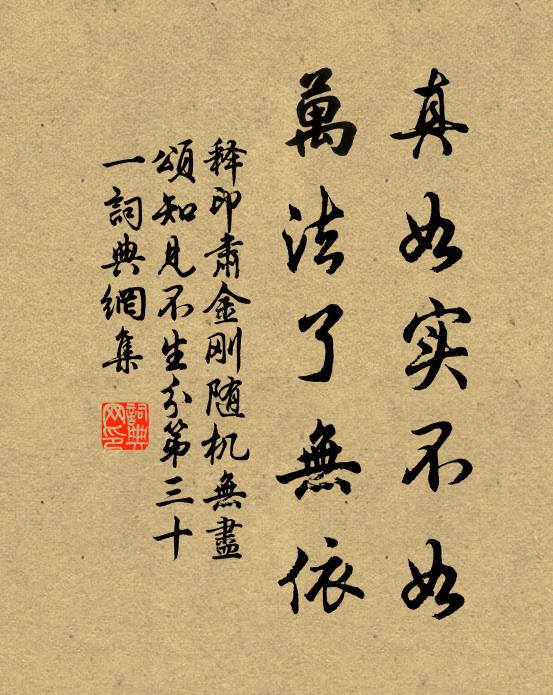 真如实不如
萬法了無依
释印肃金刚随机無盡
頌知见不生分第三十
一詞典網集
詞典
网印